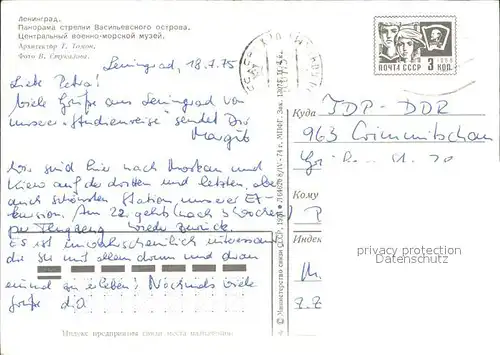 Ленинград.
Панорама стрелки Васильевского острова.
Центральный военно-морской музей.
Архитектор Т. Томон.
Фото В. Стукалова.
ПОЧТА СССР 3 КОП.
Leningrad, 18.7.75
Liebe Petra!
Viele Grüße aus Leningrad von
unserer "Studienreise" sendet Dir
Margit
Wir sind hier nach Moskau und
Kiew auf der dritten und letzten, aber
auch schönsten Station unserer Ex-
kursion. Am 22. geht's (nach 3 Wochen)
per Flugzeug wieder zurück.
Es ist unwahrscheinlich interessant
die SU mit allem drum und dran
einmal zu erleben! Nochmals viele
Grüße d.O
Индекс предприятия связи места назначения
© Министерство связи СССР, 19
Куда
DDR
963 Crimmitschau
Кому
P
Индек
M.
privacy protection
Datenschutz